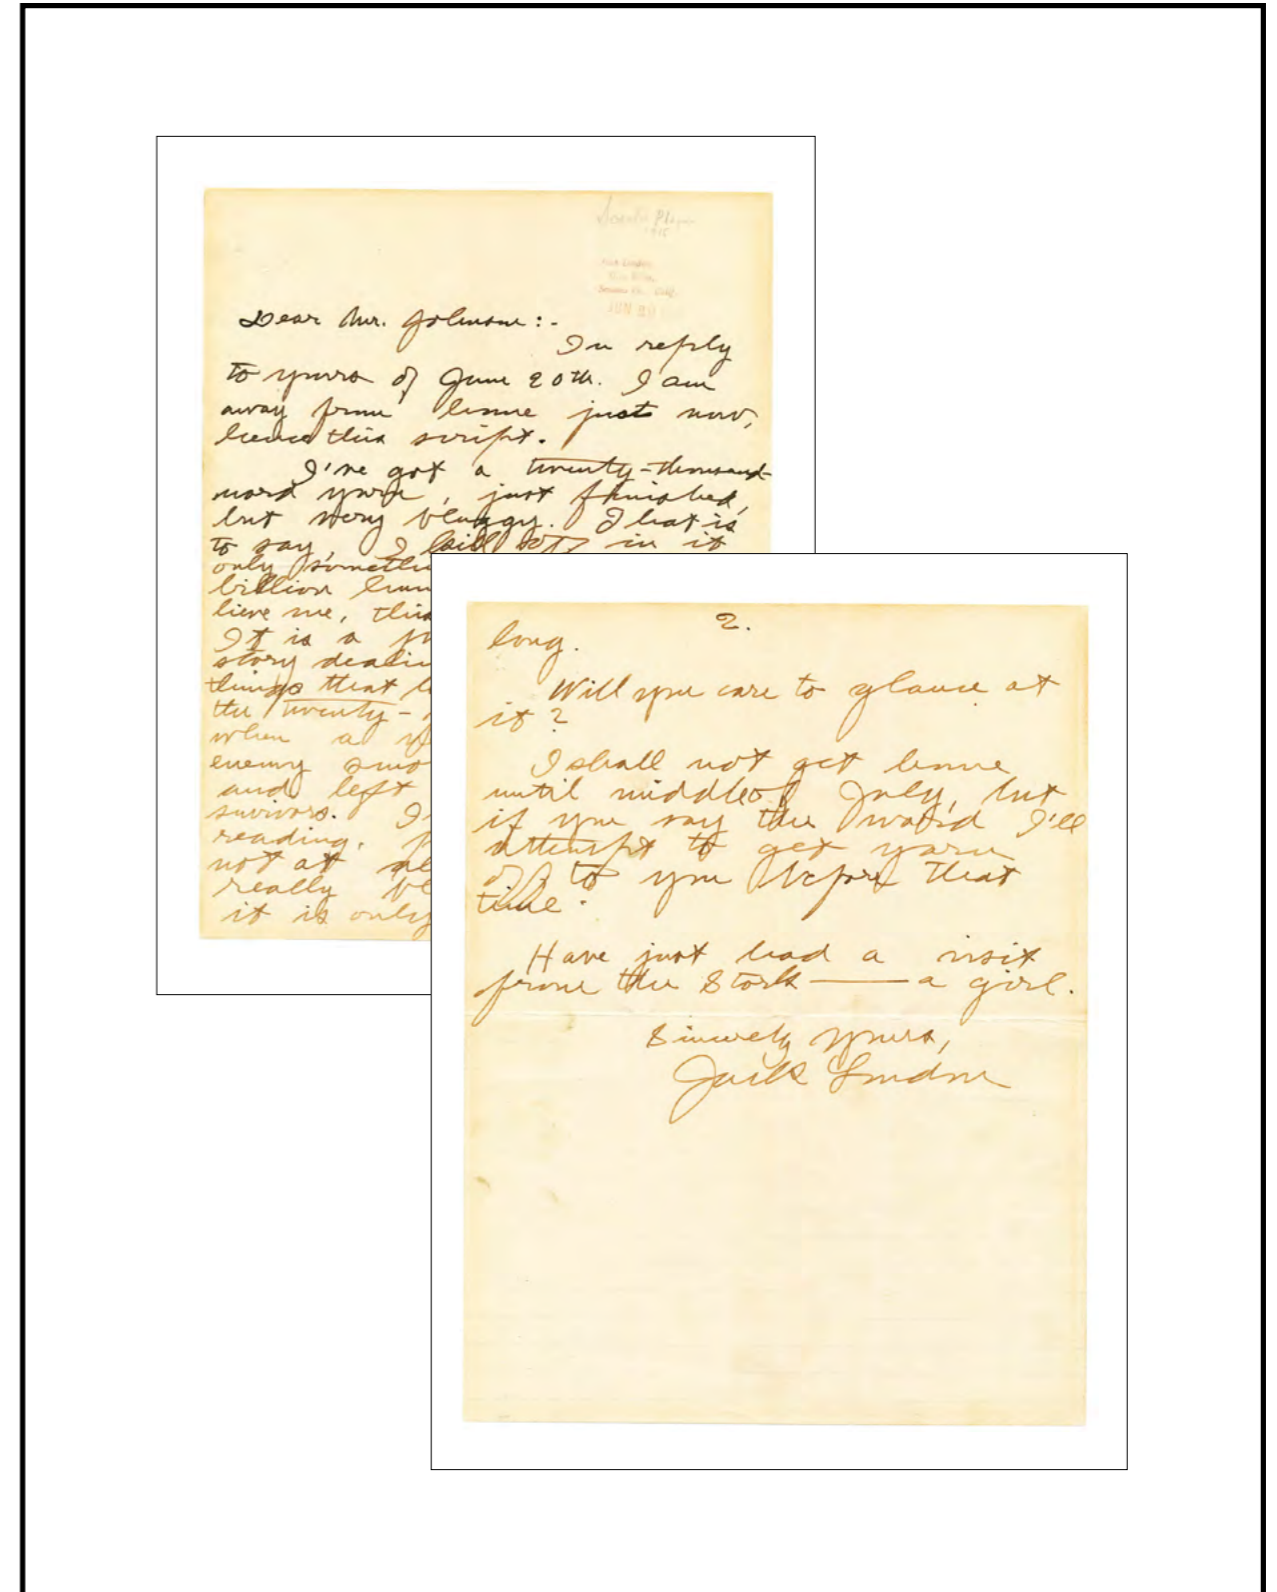 Jack London
Glen Ellen,
Sonoma Co., Calif.
JUN 20
Dear Mr. Johnson:-
In reply
to yours of June 20th. I am
away from home just now,
hence this script.
I've got a twenty-thousand-
word yarn, just finished,
but very bluggy. That is
to say, I kill off in it
only somethi
billion hum
lieve me, this
It is a p
story dealin
things that h
the twenty-
when a
enemy smo
and left
survivors. I
reading.
not at al
really bl
it is only
2.
long.
Will you care to glance at
it?
I shall not get home
until middle of July, but
if you say the word I'll
attempt to get yarn
off to you before that
time.
Have just had a visit
from the Stork — a girl.
Sincerely yours,
Jack London